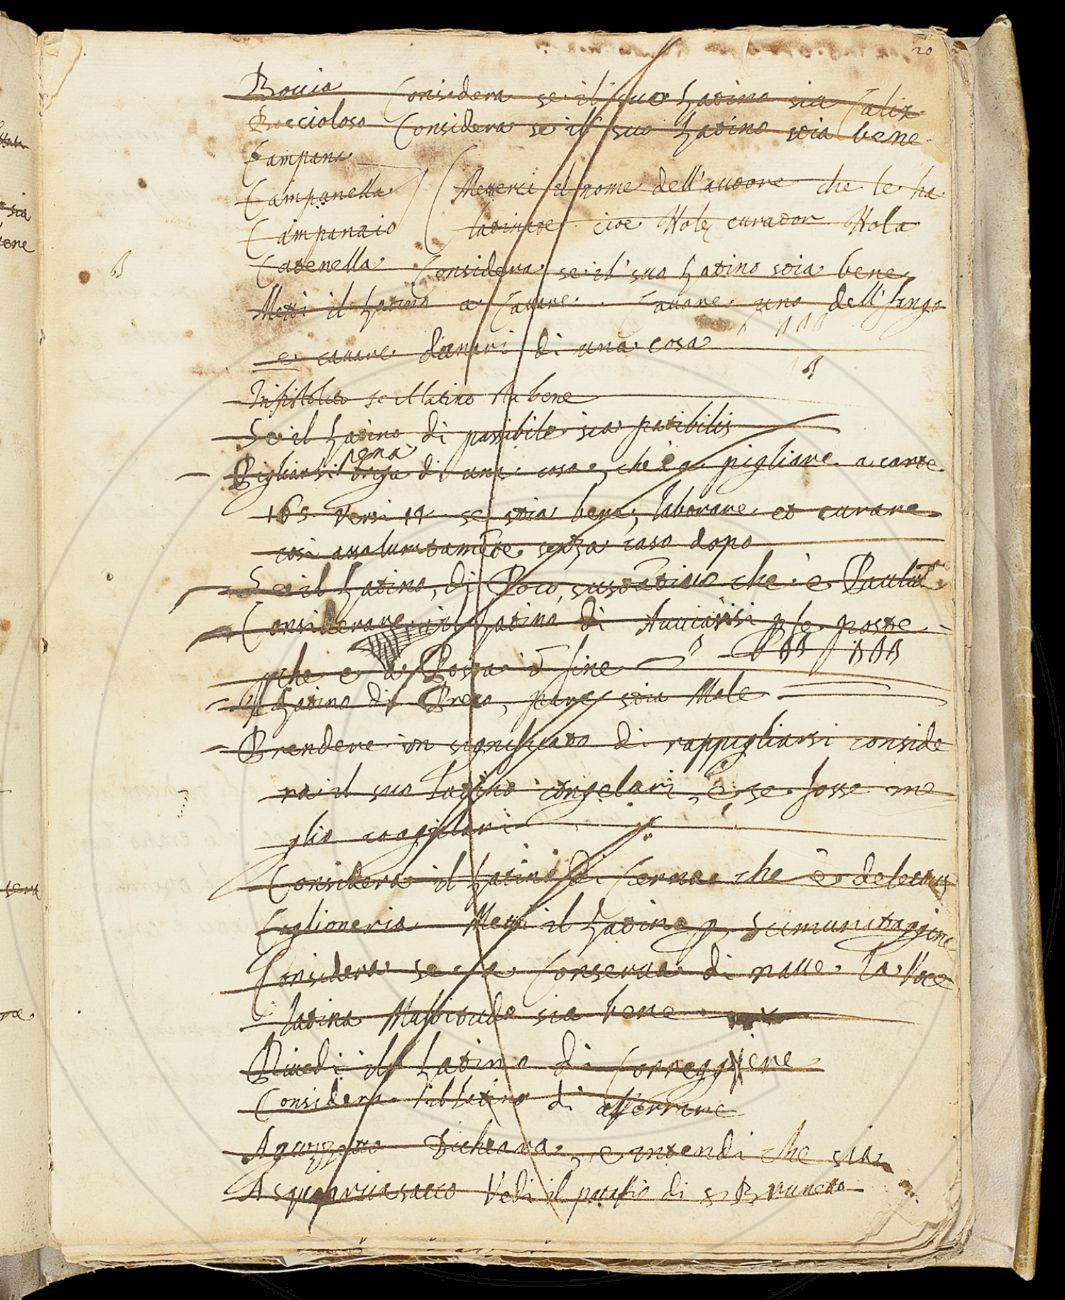 20
Boccia Considera se il suo Latino sia Calix
Boccioloso Considera se il suo Latino stia bene
Campana
Campanella Metterci il nome dell'autore che le ha
Campanaio cioe Nola curador Nola
Catenella Considera se il suo Latino stia bene
Metti il Latino a Cavare. Cavare uno dell'fango
e cavare danari di una cosa
se il latino sta bene
Se il Latino di passibile sia patibilis
Pigliarsi briga di una cosa, che è pigliare a carte
165 versi 14 se stia bene, laborare et curare
cosi assolutamēte senza caso dopo
Se il Latino, di Poco, sustātivo che è
Considerare il Latino di p le poste
che e a Posta ī fine
Il Latino di Preso, pare stia Male
Prendere in significato di rappigliarsi conside
ra il suo Latino congelari, e se fosse me
glio coagulari
Considera il Latino di Cerna, che è
Coglioneria Metti il Latino p Scimunitaggine
Considera se a Conserva di nave la Voce
latina stia bene
Rivedi il Latino di Correggiere
Considera il Latino di afferrare
Aguzzetto Dichiara, e intendi che sia
Vedi il pataffio di S Brunetto